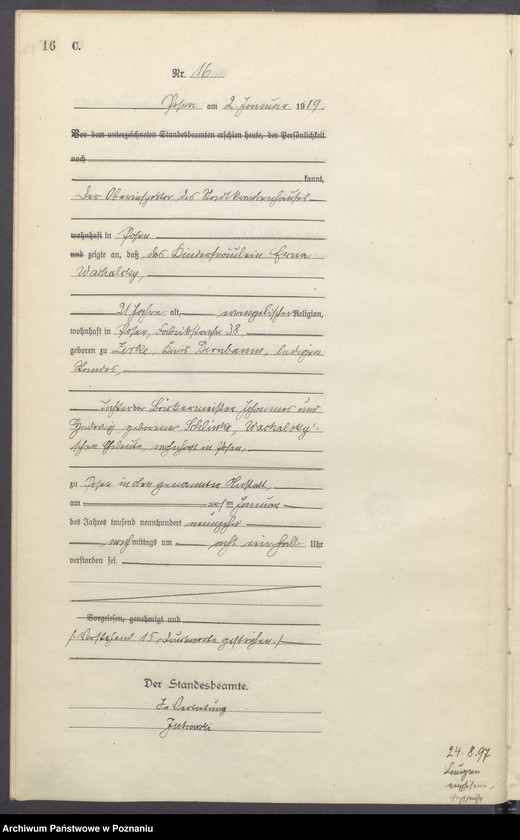 16 C.
Nr. 16
Posen am 2. Januar 1919.
Vor dem unterzeichneten Standesbeamten erschien heute, der Persönlichkeit
nach
kannt,
Der Oberinspektor des Stadtkrankenhauses
wohnhaft in Posen
und zeigte an, daß das Kinderfräulein Erna
Wachalsky,
21 Jahre alt, evangelischer Religion,
wohnhaft in Posen, Fabrikstraße 38,
geboren zu Zirke, Kreis Birnbaum, ledigen
Standes,
Tochter der Bäckermeister Johannes und
Hedwig geborene Schlinke, Wachalsky'-
schen Eheleute, wohnhaft in Posen,
zu Posen in der genannten Anstalt,
am ersten Januar
des Jahres tausend neunhundert neunzehn
nachmittags um acht einhalb Uhr
verstorben sei.
Vorgelesen, genehmigt und
/: Vorstehend 15 Druckworte gestrichen. :/
Der Standesbeamte.
In Vertretung
24.8.97
Lungen
Archiwum Państwowe w Poznaniu